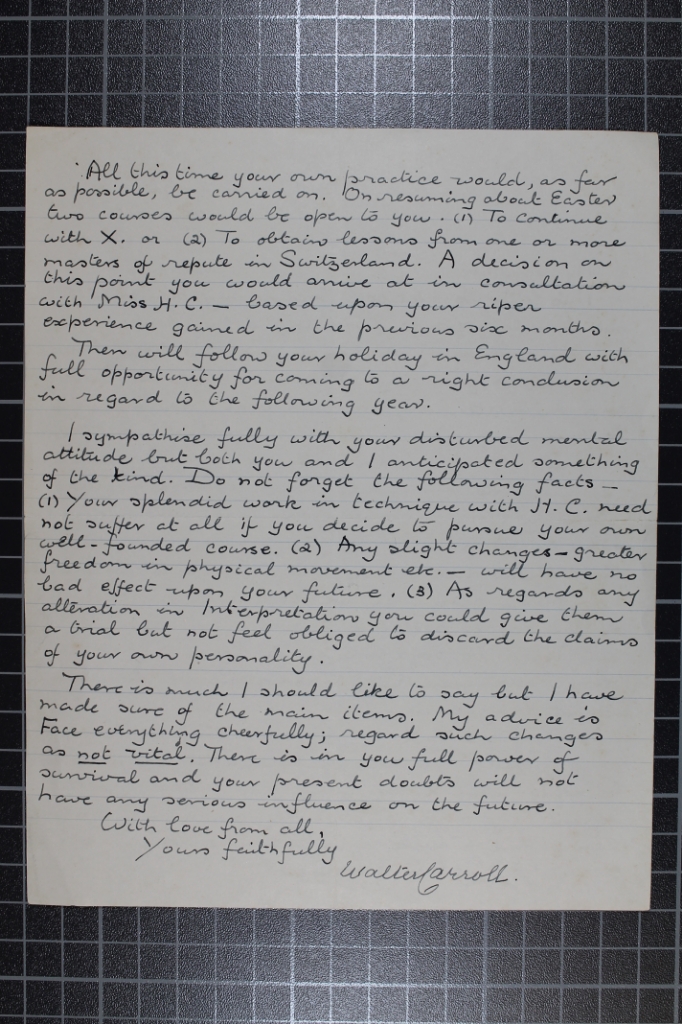 All this time your own practice would, as far
as possible, be carried on. On resuming about Easter
two courses would be open to you. (1) To continue
with X. or (2) To obtain lessons from one or more
masters of repute in Switzerland. A decision on
this point you would arrive at in consultation
with Miss H.C. — based upon your riper
experience gained in the previous six months.
Then will follow your holiday in England with
full opportunity for coming to a right conclusion
in regard to the following year.
I sympathise fully with your disturbed mental
attitude but both you and I anticipated something
of the kind. Do not forget the following facts —
(1) Your splendid work in technique with H.C. need
not suffer at all if you decide to pursue your own
well-founded course. (2) Any slight changes — greater
freedom in physical movement etc. — will have no
bad effect upon your future. (3) As regards any
alteration in Interpretation you could give them
a trial but not feel obliged to discard the claims
of your own personality.
There is much I should like to say but I have
made sure of the main items. My advice is
Face everything cheerfully; regard such changes
as not vital. There is in you full power of
survival and your present doubts will not
have any serious influence on the future.
With love from all,
Yours faithfully
Walter Carroll.